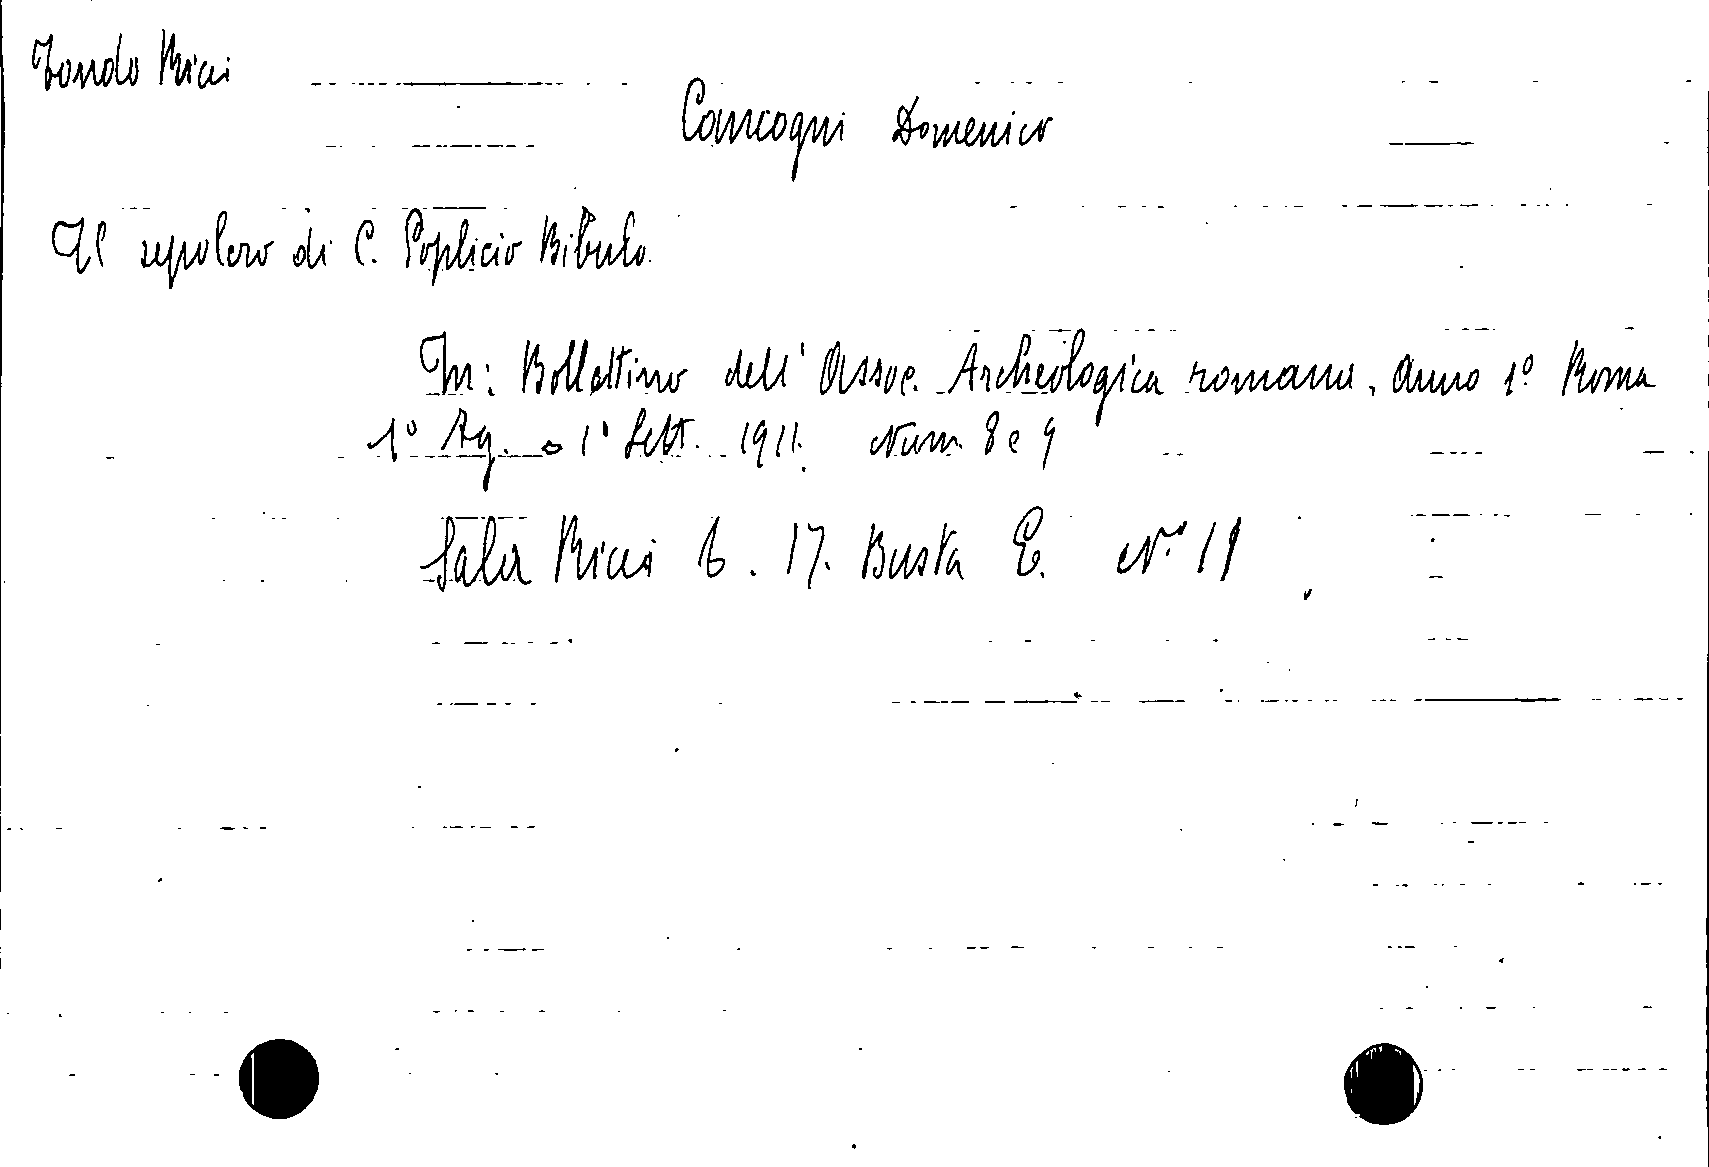 Fondo Ricci
Cancogni Domenico
Il sepolcro di C. Poplicio Bibulo
In: Bollettino dell'Assoc. Archeologica romana, Anno 1º Roma
1º Ag. e 1º Sett. 1911. Num. 8 e 9
Sala Ricci 6. 17. Busta E. Nº 11